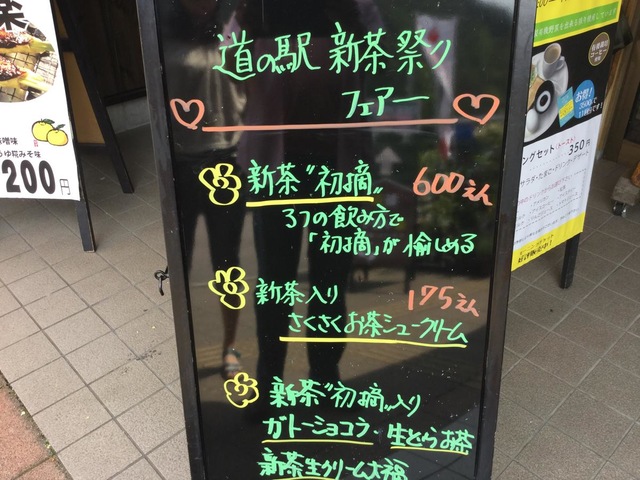 道の駅 新茶祭り
フェアー
新茶"初摘" 600えん
3つの飲み方で
「初摘」が愉しめる
新茶入り 175えん
さくさくお茶シュークリーム
新茶"初摘"入り
ガトーショコラ・生どらお茶
新茶生クリーム大福
味噌味
みそ味
200円
お得!
350円
サラダ・たまご・ドリンク・デザート